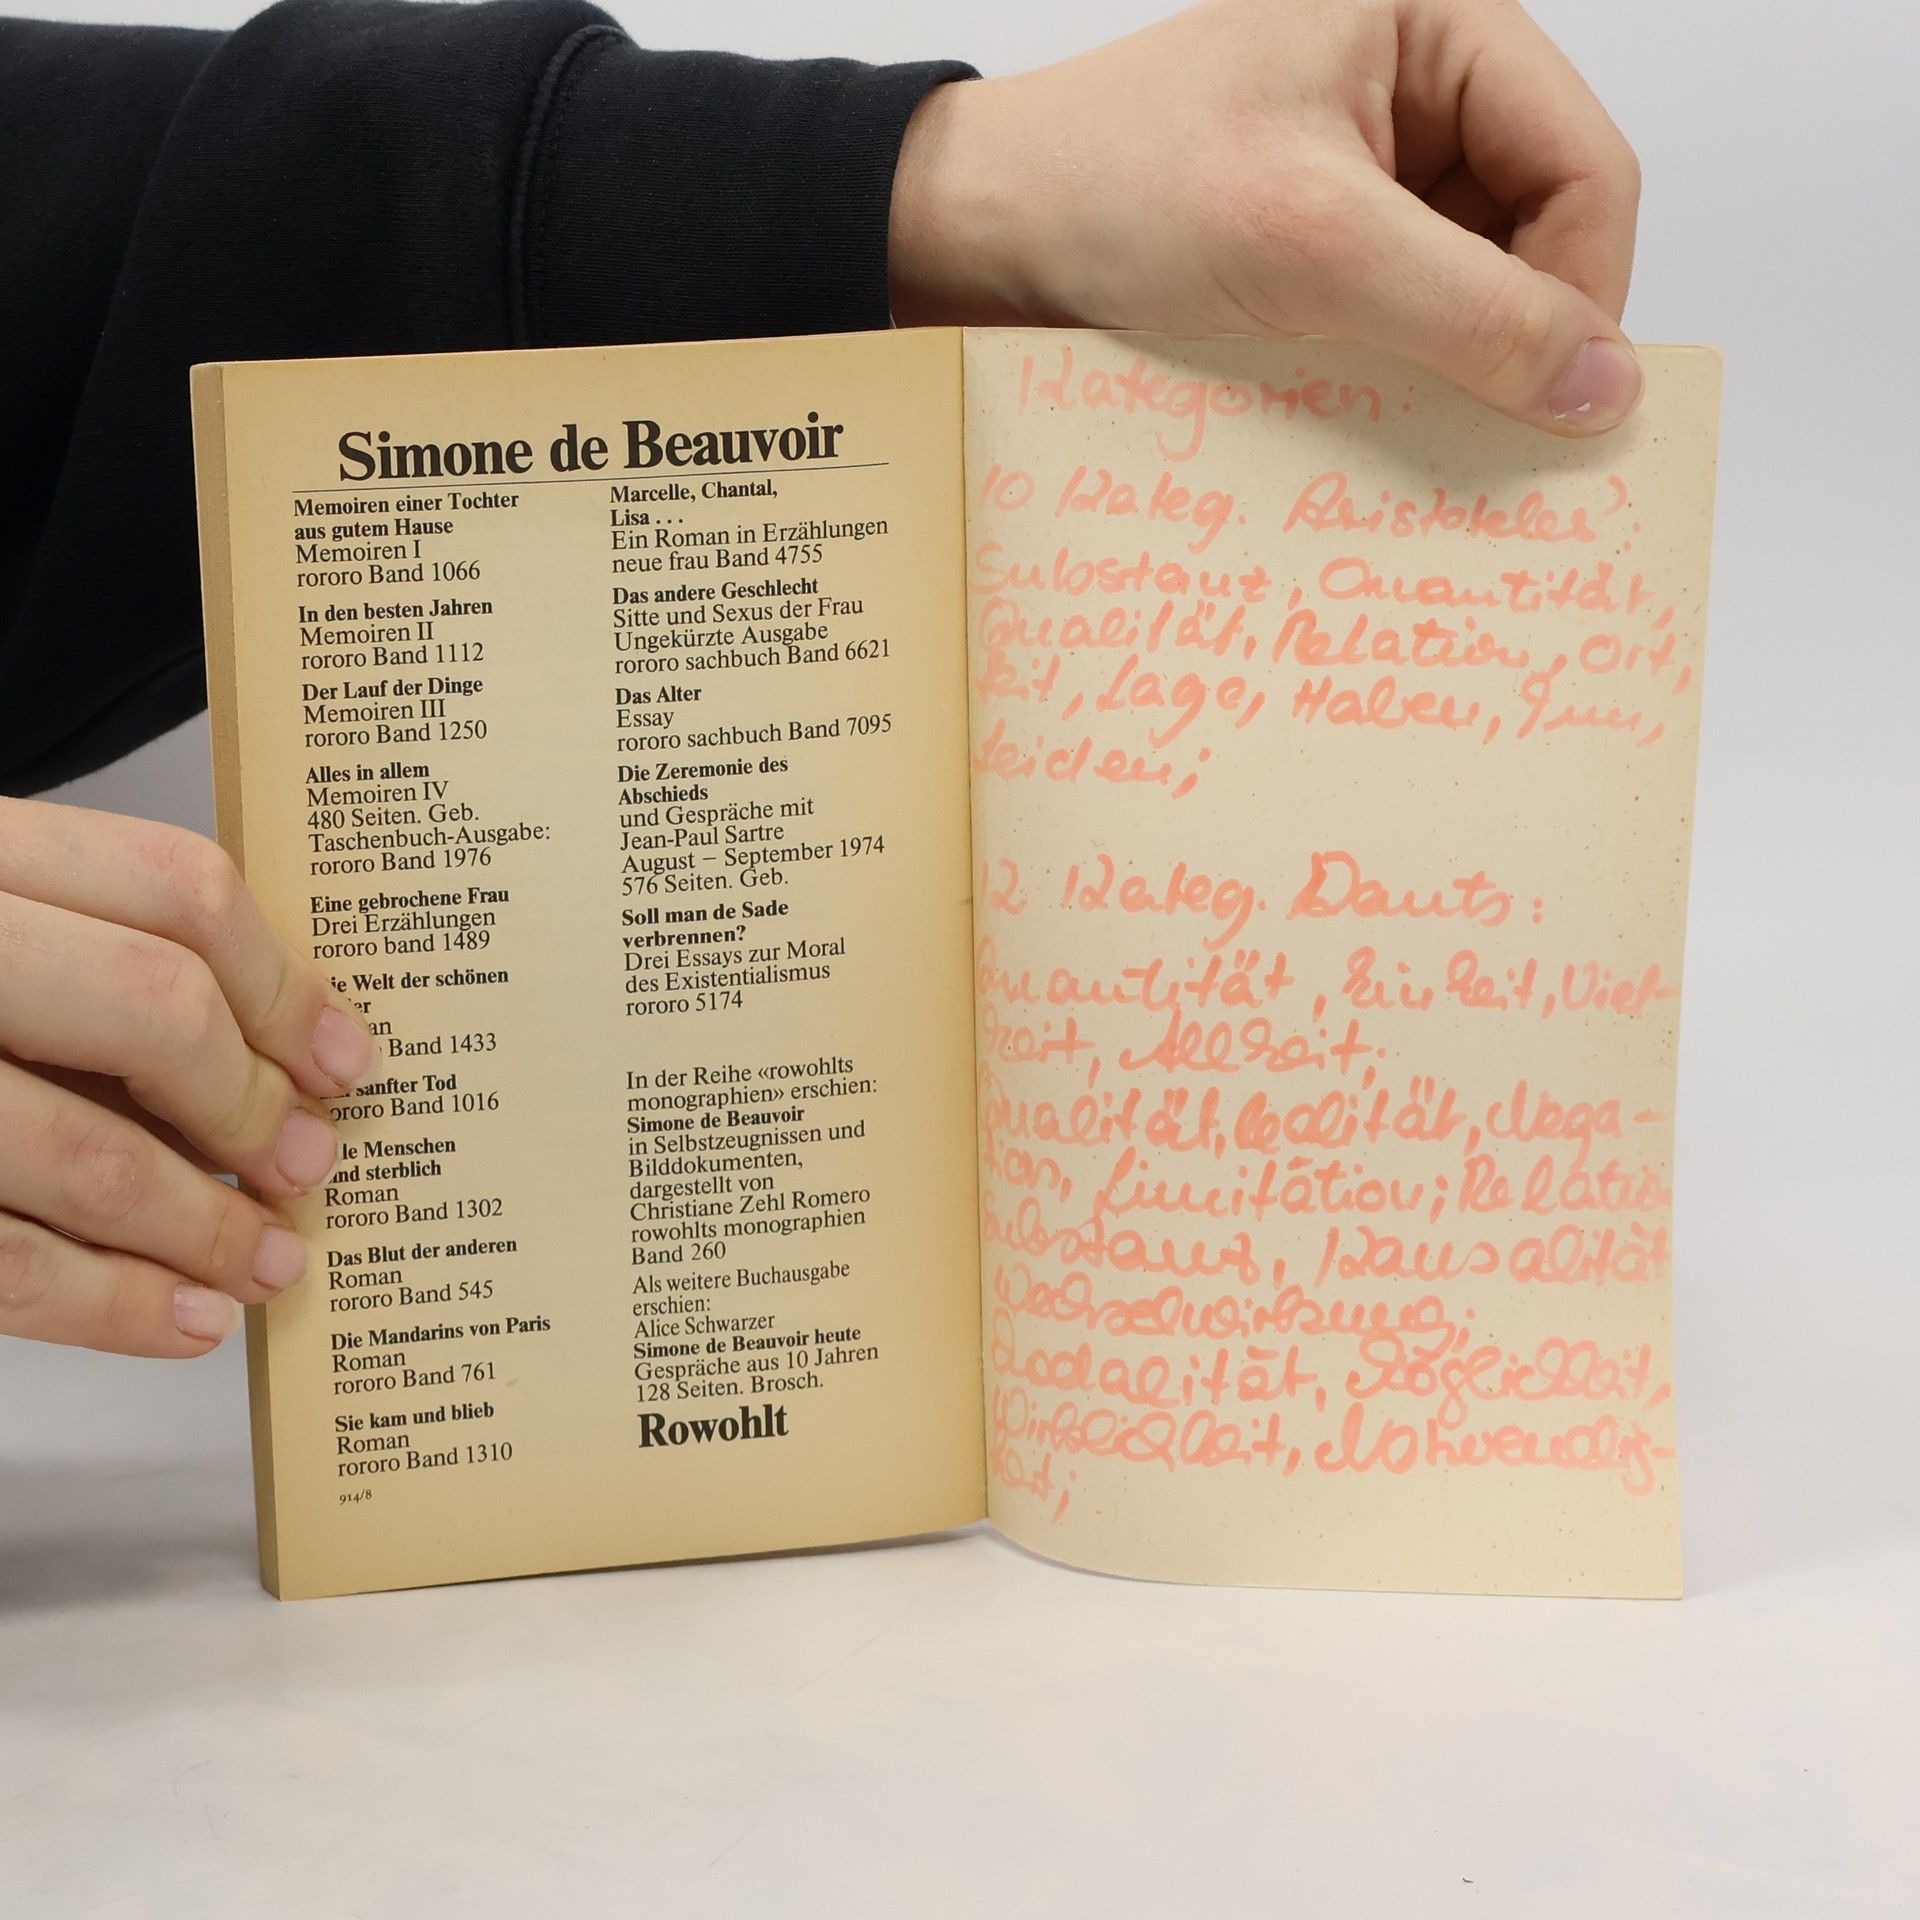 Simone de Beauvoir
Memoiren einer Tochter
aus gutem Hause
Memoiren I
rororo Band 1066
In den besten Jahren
Memoiren II
rororo Band 1112
Der Lauf der Dinge
Memoiren III
rororo Band 1250
Alles in allem
Memoiren IV
480 Seiten. Geb.
Taschenbuch-Ausgabe:
rororo Band 1976
Eine gebrochene Frau
Drei Erzählungen
rororo band 1489
ie Welt der schönen
er
an
Band 1433
sanfter Tod
ororo Band 1016
le Menschen
nd sterblich
Roman
rororo Band 1302
Das Blut der anderen
Roman
rororo Band 545
Die Mandarins von Paris
Roman
rororo Band 761
Sie kam und blieb
Roman
rororo Band 1310
914/8
Marcelle, Chantal,
Lisa . . .
Ein Roman in Erzählungen
neue frau Band 4755
Das andere Geschlecht
Sitte und Sexus der Frau
Ungekürzte Ausgabe
rororo sachbuch Band 6621
Das Alter
Essay
rororo sachbuch Band 7095
Die Zeremonie des
Abschieds
und Gespräche mit
Jean-Paul Sartre
August – September 1974
576 Seiten. Geb.
Soll man de Sade
verbrennen?
Drei Essays zur Moral
des Existentialismus
rororo 5174
In der Reihe «rowohlts
monographien» erschien:
Simone de Beauvoir
in Selbstzeugnissen und
Bilddokumenten,
dargestellt von
Christiane Zehl Romero
rowohlts monographien
Band 260
Als weitere Buchausgabe
erschien:
Alice Schwarzer
Simone de Beauvoir heute
Gespräche aus 10 Jahren
128 Seiten. Brosch.
Rowohlt
Kategorien:
10 Kateg. Aristoteles':
Substanz, Quantität,
Qualität, Relation, Ort,
Zeit, Lage, Haben,
Leiden;
12 Kateg.
Quantität, Einheit, Viel-
heit, Allheit;
Qualität, Realität, Nega-
tion, Limitation; Relation
Substanz, Kausalität
Wechselwirkung;
Modalität, Möglichkeit,
Wirklichkeit, Notwendig-
keit;